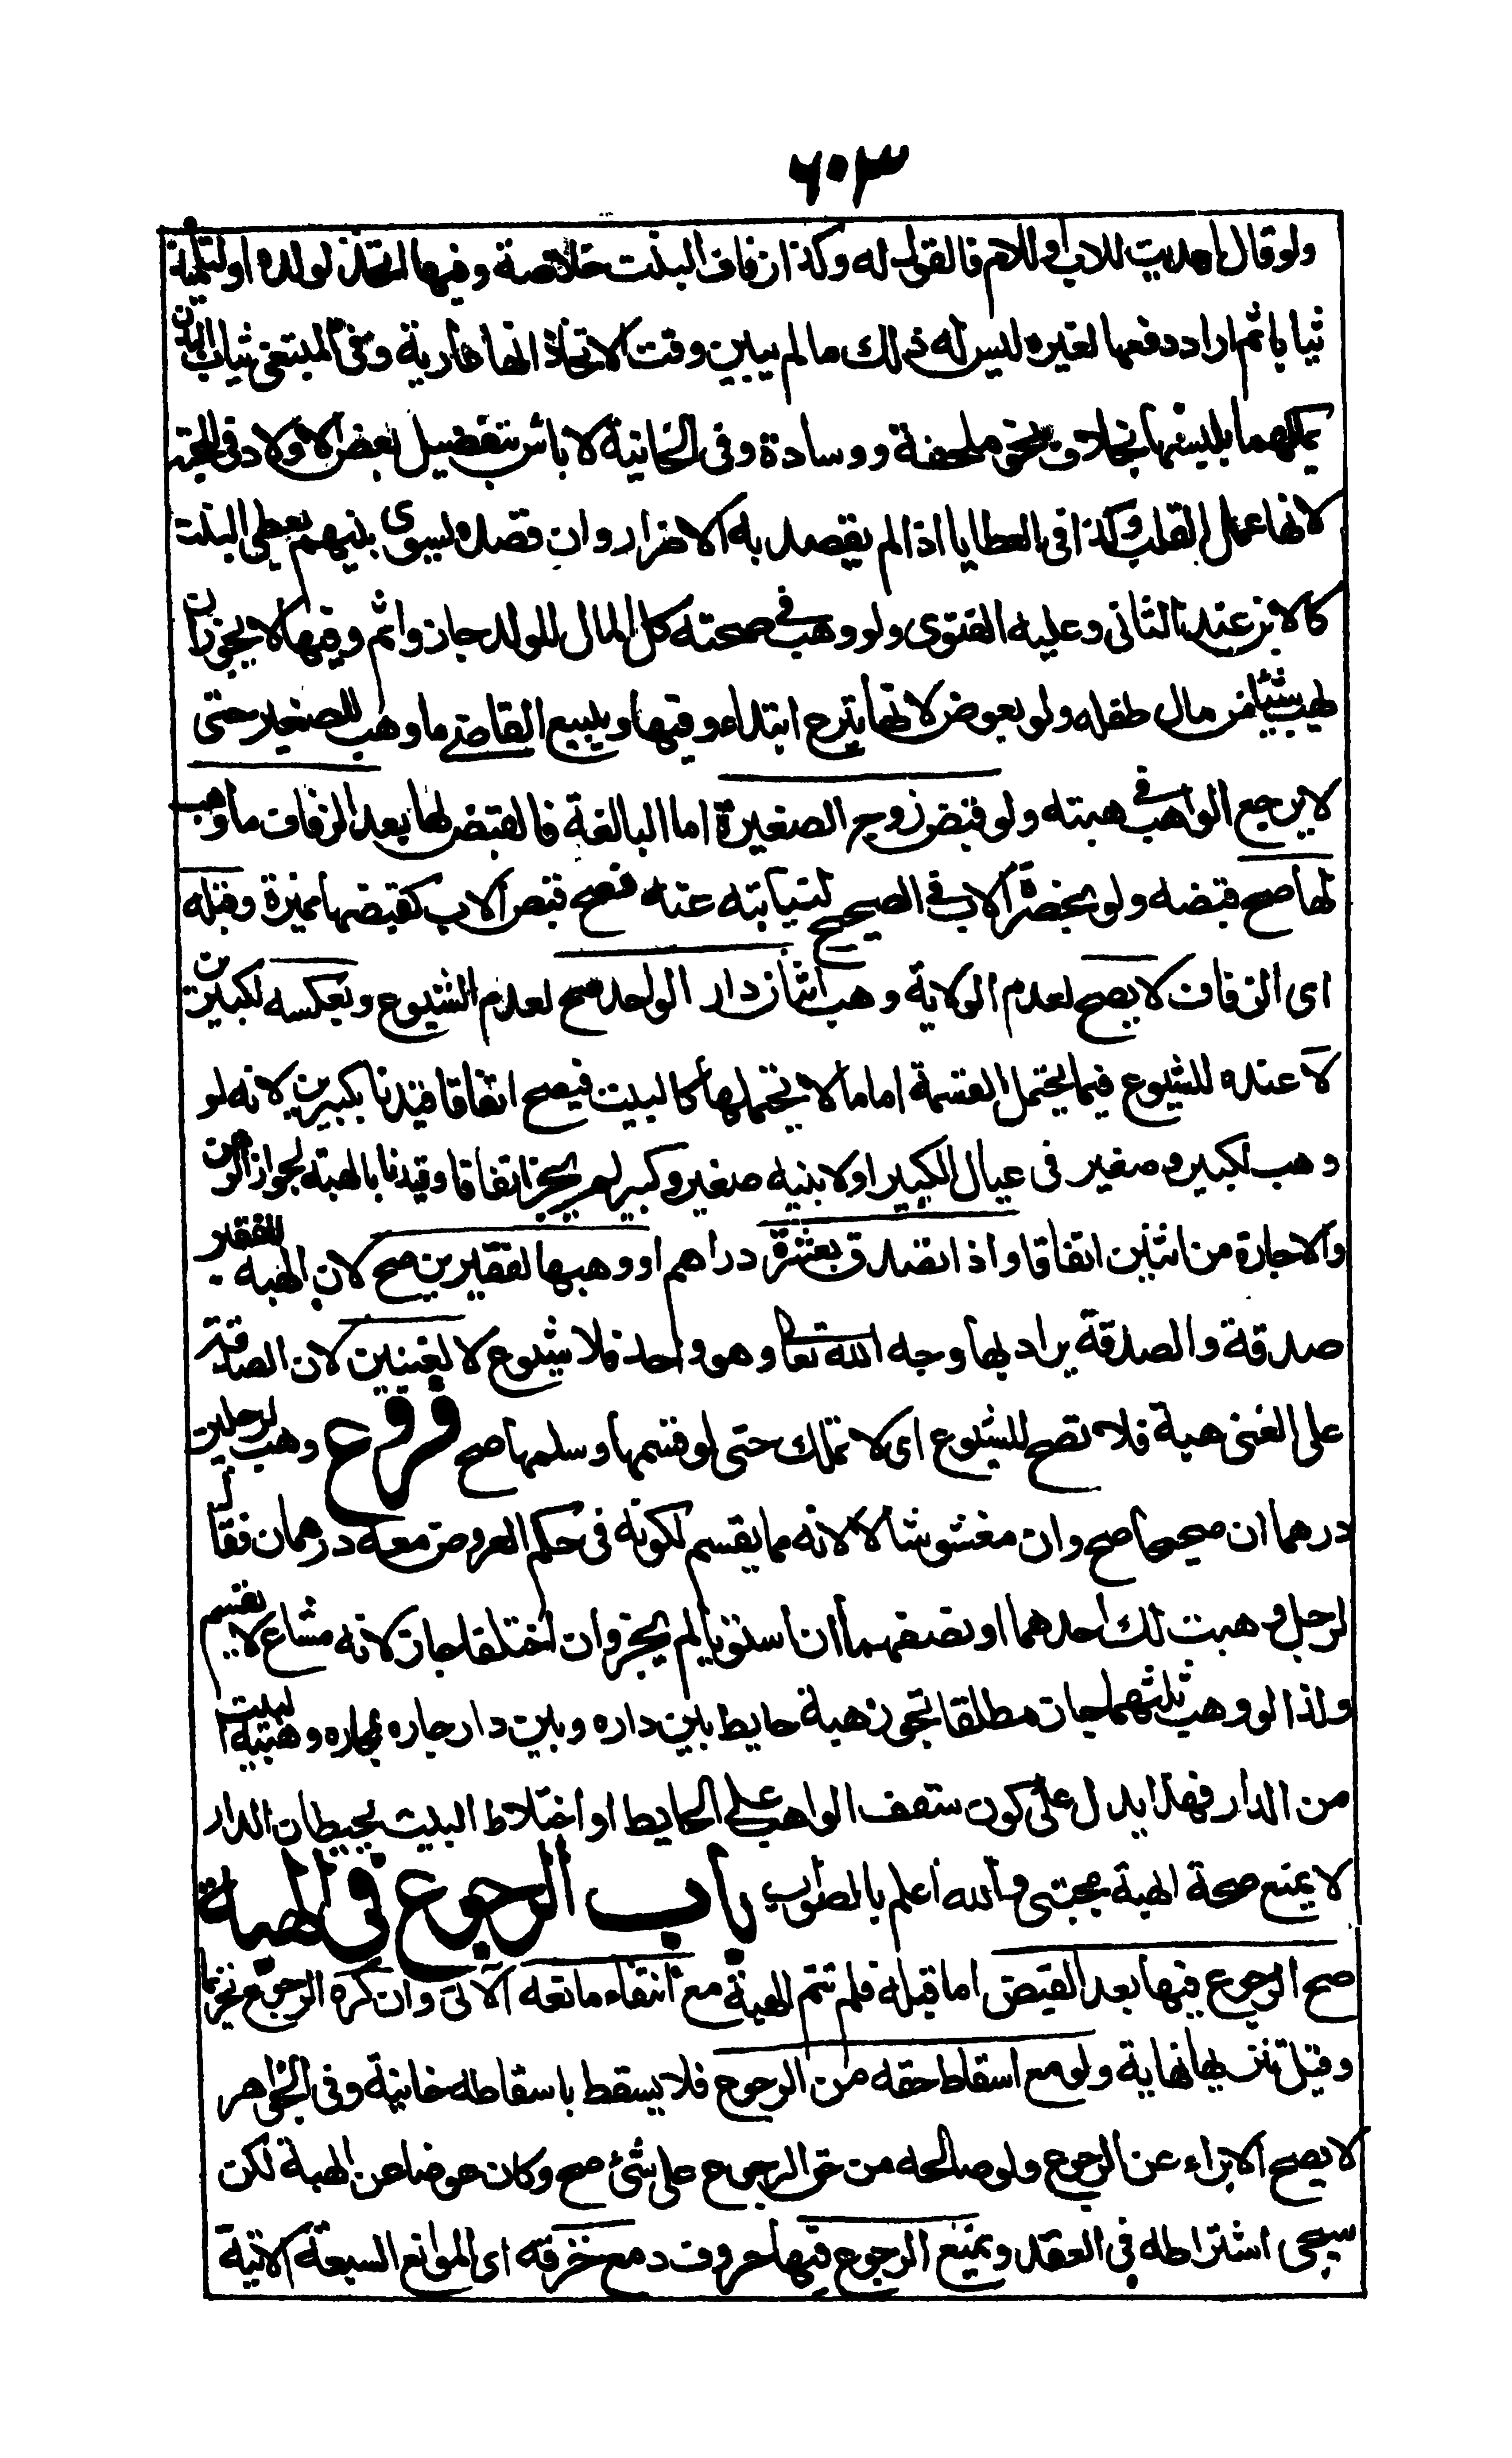 ٦٠٣
ولو قال اهديت للاب او للام فالقول له وكذا زفاف البنت خلاصة وفيها اتخذ لولده او لتلميذه
ثيابا ثم اراد دفعها لغيره ليس له ذلك ما لم يبين وقت الاتخاذ انها عارية وفى المبتغى ثياب البدن
يملكها بلبسها بخلاف نحو ملحفة ووسادة وفى الخانية لا باس بتفضيل بعض الاولاد فى المحبة
لانها عمل القلب وكذا فى العطايا اذا لم يقصد به الاضرار وان قصده ليسوى بينهم يعطى البنت
كالابن عند الثانى وعليه الفتوى ولو وهب فى صحته كل المال للولد جاز واثم وفيها لا يجوز ان
يهب شيئا من مال طفله ولو بعوض لانها تبرع ابتداء وفيها ويبيع القاضى ما وهب للصغير حتى
لا يرجع الواهب فى هبته ولو قبض زوج الصغيرة اما البالغة فالقبض لها بعد الزفاف ما وهب
لها صح قبضه ولو بحضرة الاب فى الصحيح لنيابته عنه فصح قبض الاب كقبضها مميزة وقبله
اى الزفاف لا يصح لعدم الولاية وهب اثنان دار الواحد صح لعدم الشيوع وبعكسه لكبيرين
لا عنده للشيوع فيما يحتمل القسمة اما ما لا يحتملها كالبيت فيصح اتفاقا قيدنا بكبيرين لانه لو
وهب لكبير وصغير فى عيال الكبير او لابنيه صغير وكبير لم يجز اتفاقا وقيدنا بالهبة لجواز الرهن
والاجارة من اثنين اتفاقا واذا تصدق بعشرة دراهم او وهبها لفقيرين صح لان الهبة للفقير
صدقة والصدقة يراد بها وجه الله تعا وهو واحد فلا شيوع لا لغنيين لان الصدقة
على الغنى هبة فلا تصح للشيوع اى لا تملك حتى لو قسمها وسلمها صح فروع وهب لرجلين
درهما ان صحيحا صح وان مغشوشا لا لانه مما يقسم لكونه فى حكم العروض معه درهمان فقال
لرجل وهبت لك احدهما او نصفهما ان استويا لم يجز وان اختلفا جاز لانه مشاع لا يقسم
ولذا لو وهب ثلثهما جاز مطلقا تجوز هبة حايط بين داره وبين دار جاره لجاره وهبته البيت
من الدار فهذا يدل على كون سقف الواهب على الحايط او اختلاط البيت بحيطان الدار
لا يمنع صحة الهبة مجتبى والله اعلم بالصواب باب الرجوع فى الهبة
صح الرجوع فيها بعد القبض اما قبله فلم تتم الهبة مع انتفاء مانعه الآتى وان كره الرجوع تحريما
وقيل تنزيها نهاية ولو مع اسقاط حقه من الرجوع فلا يسقط باسقاطه خانية وفى الجواهر
لا يصح الابراء عن الرجوع ولو صالحه من حق الرجوع على شئ صح وكان عوضا عن الهبة لكن
سيجى اشتراطه فى العقد ويمنع الرجوع فيها حروف دمع خزقه اى الموانع السبعة الاتية